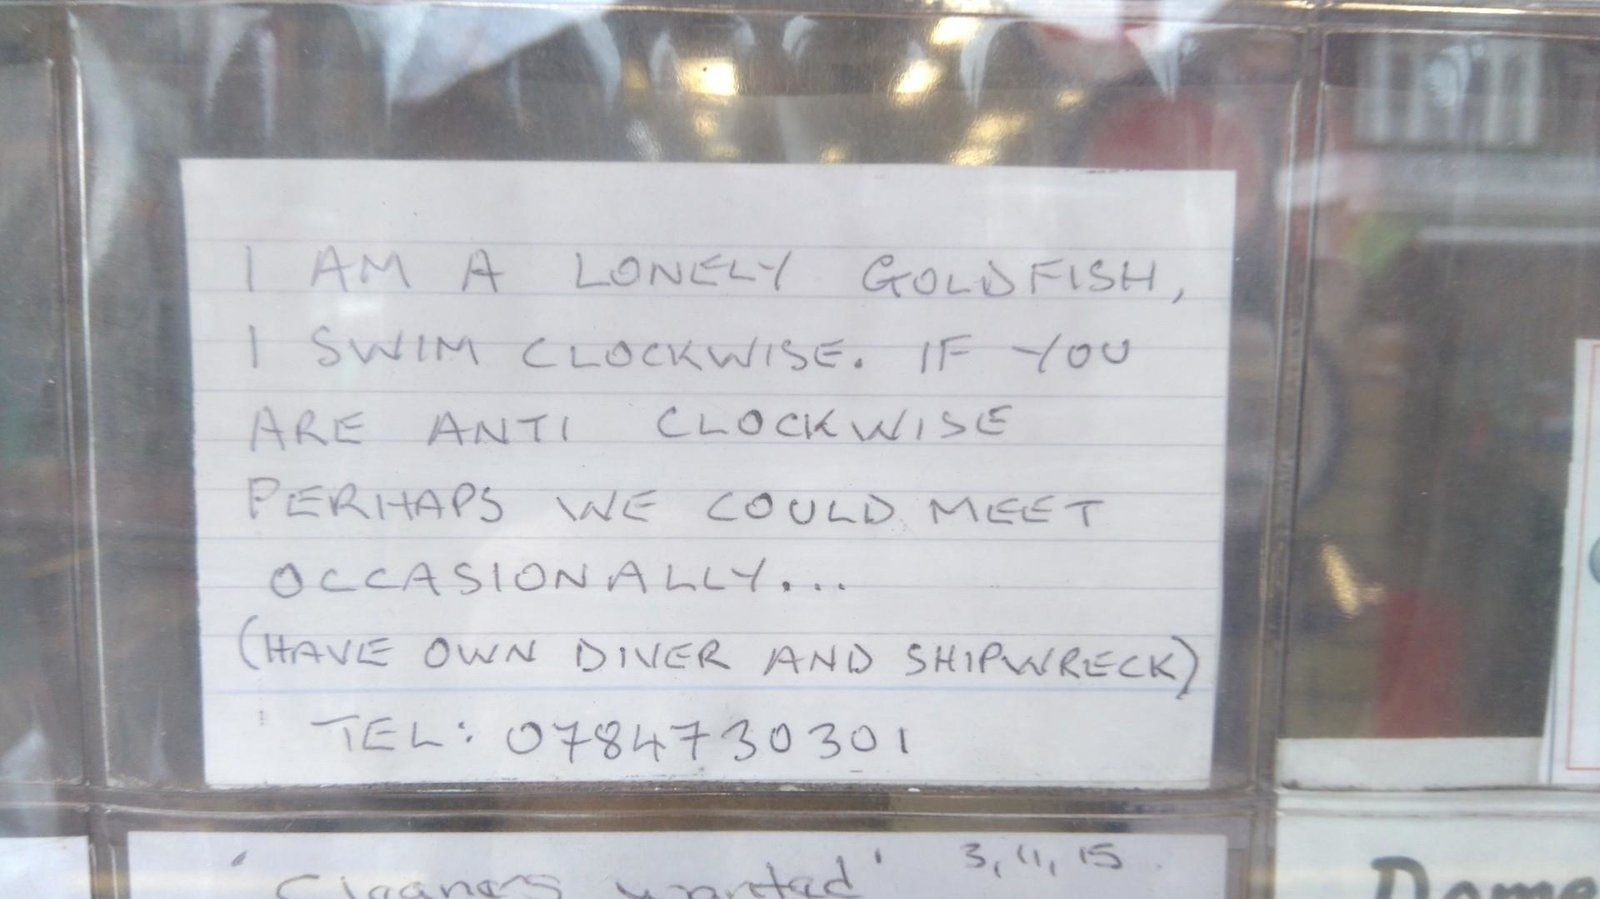 I AM A LONELY GOLDFISH,
I SWIM CLOCKWISE. IF YOU
ARE ANTI CLOCKWISE
PERHAPS WE COULD MEET
OCCASIONALLY...
(HAVE OWN DIVER AND SHIPWRECK)
TEL: 0784730301
'Cleaners wanted' 3, 11, 15
Dome